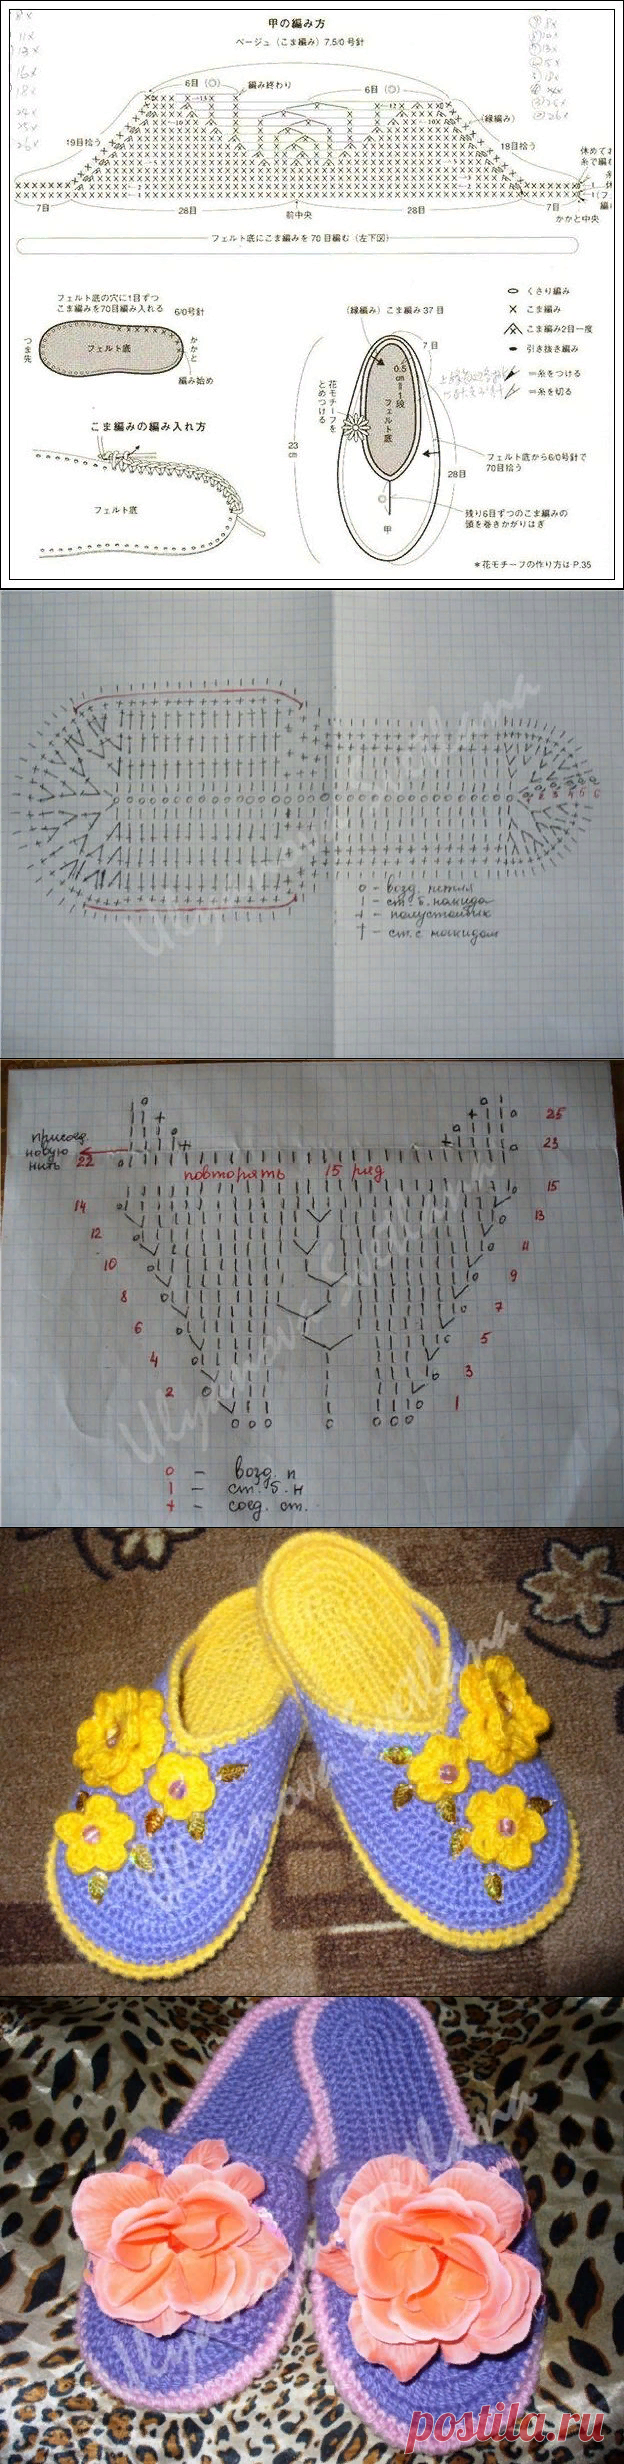 甲の編み方
ベージュ（こま編み）7.5/0号針
6目（◎）
編み終わり
6目（◎）
（縁編み）
19目拾う
19目拾う
7目
28目
前中央
28目
7目
かかと中央
フェルト底にこま編みを70目編む（左下図）
フェルト底の穴に1目ずつ
こま編みを70目編み入れる
6/0号針
つま先
フェルト底
かかと
編み始め
こま編みの編み入れ方
フェルト底
（縁編み）こま編み37目
7目
0.5cm=1段
フェルト底
花モチーフをとめつける
23cm
28目
甲
くさり編み
こま編み
こま編み2目一度
引き抜き編み
=糸をつける
=糸を切る
フェルト底から6/0号針で
70目拾う
残り6目ずつのこま編みの
頭を巻きかがりはぎ
*花モチーフの作り方は P.35
Ulyanova Svetlana
о - возд. петля
| - ст. б. накида
+ - полустолбик
† - ст. с накидом
присоед.
новую
нить
22
25
23
повторять 15 ряд
15
14
13
12
11
10
9
8
7
6
5
4
3
2
1
Ulyanova Svetlana
о - возд. п
| - ст. б. н
+ - соед. ст.
Ulyanova Svetlana
Ulyanova Svetlana
postila.ru